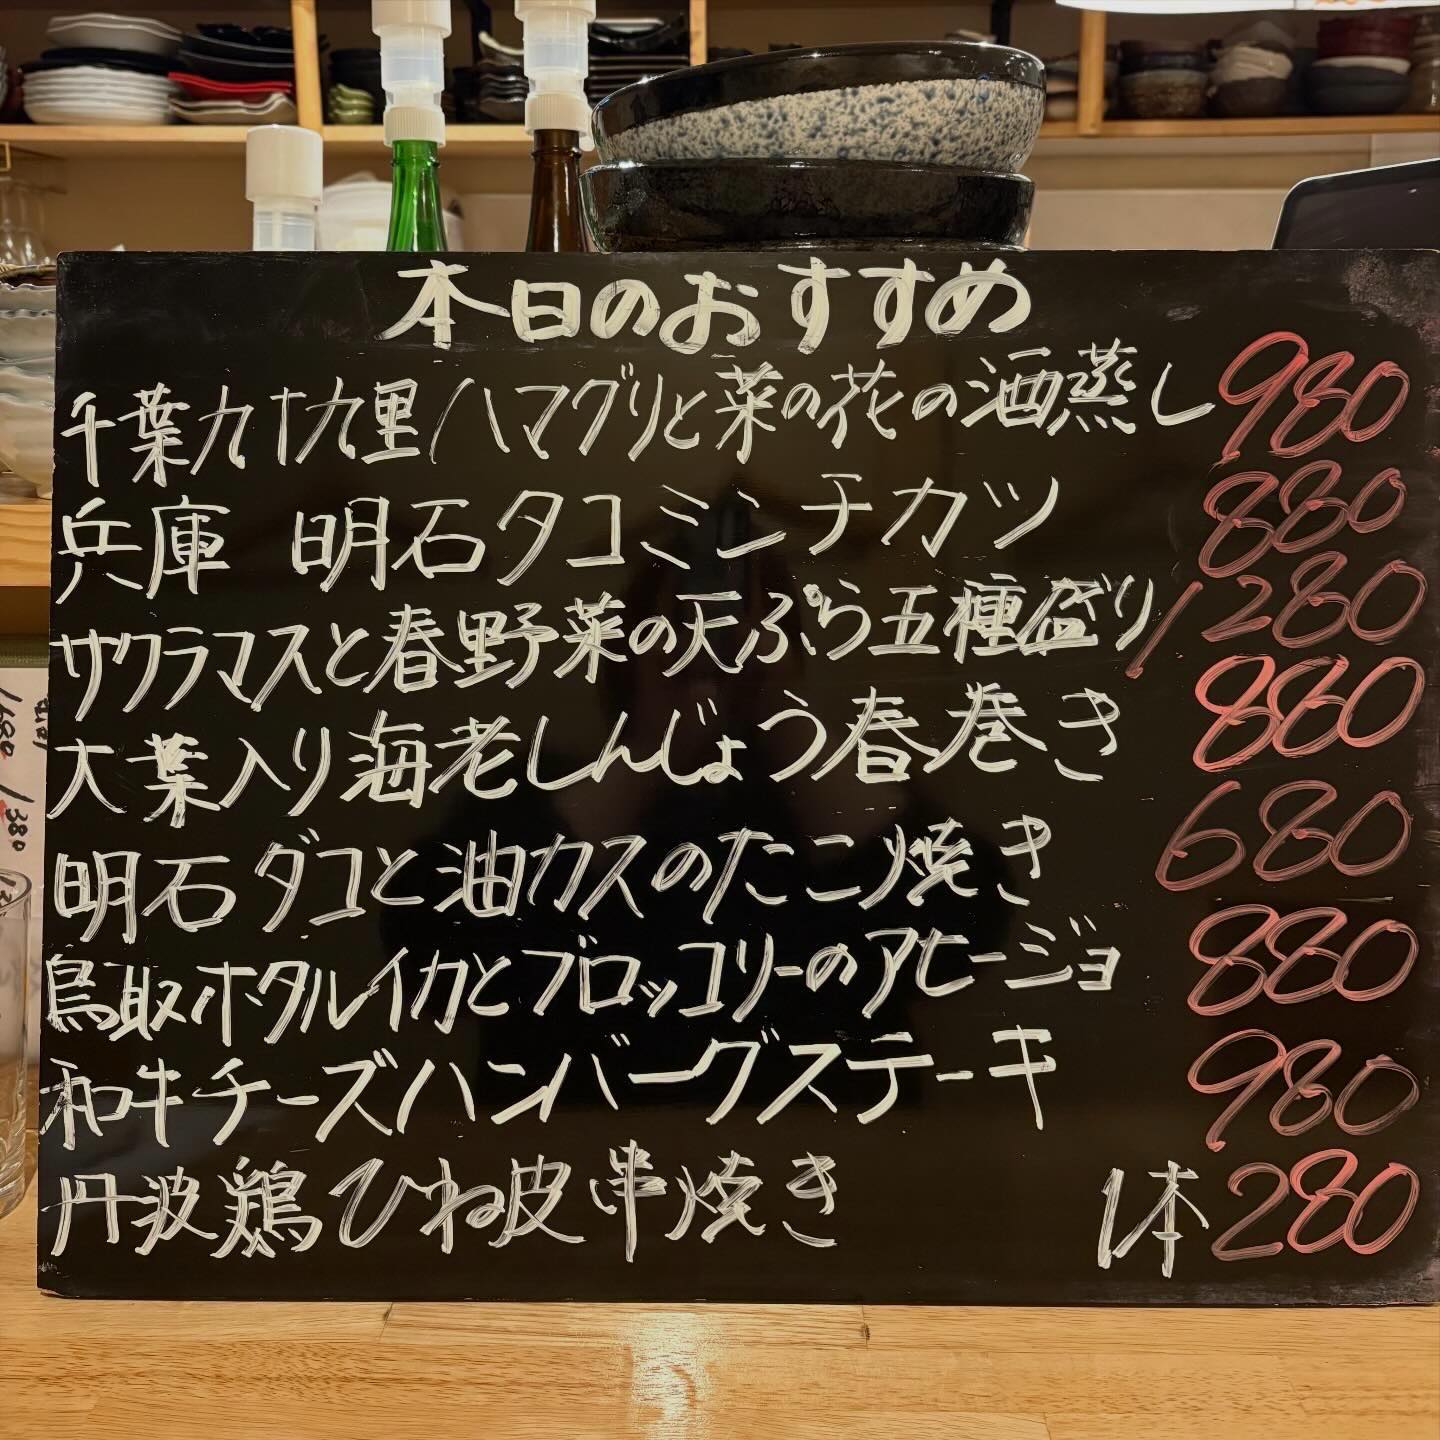 本日のおすすめ
千葉九十九里ハマグリと菜の花の酒蒸し 980
兵庫 明石タコミンチカツ 880
サクラマスと春野菜の天ぷら五種盛り 1280
大葉入り海老しんじょう春巻き 880
明石ダコと油カスのたこ焼き 680
鳥取ホタルイカとブロッコリーのアヒージョ 880
和牛チーズハンバーグステーキ 980
丹波鶏ひね皮串焼き 1本 280